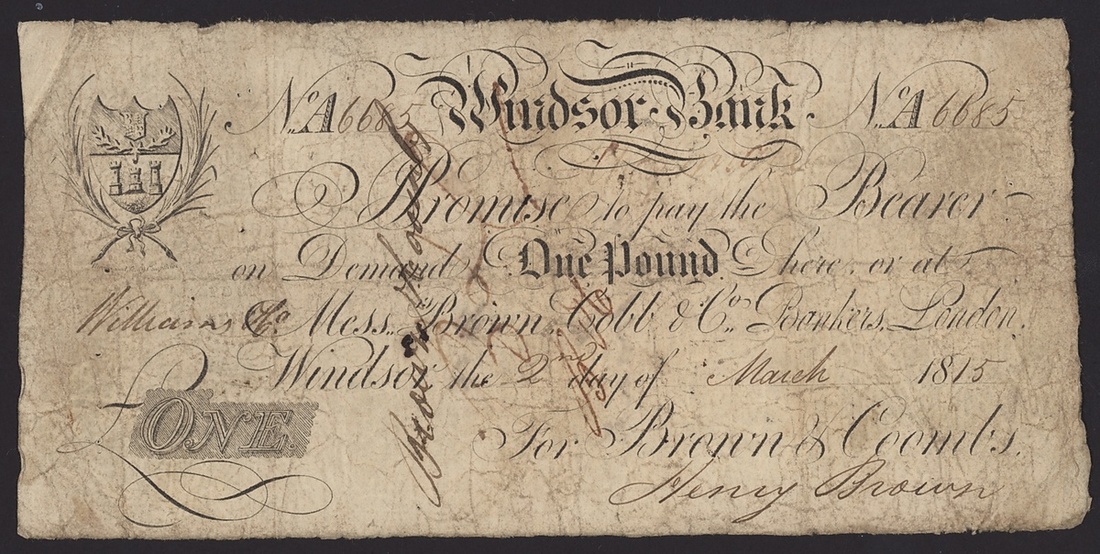 No. A6685 Windsor Bank No. A6685
I Promise to pay the Bearer
on Demand One Pound here or at
Williams & Co Messrs Brown, Cobb & Co. Bankers, London.
Windsor the 2nd day of March 1815
£ONE
For Brown & Coombs.
Henry Brown